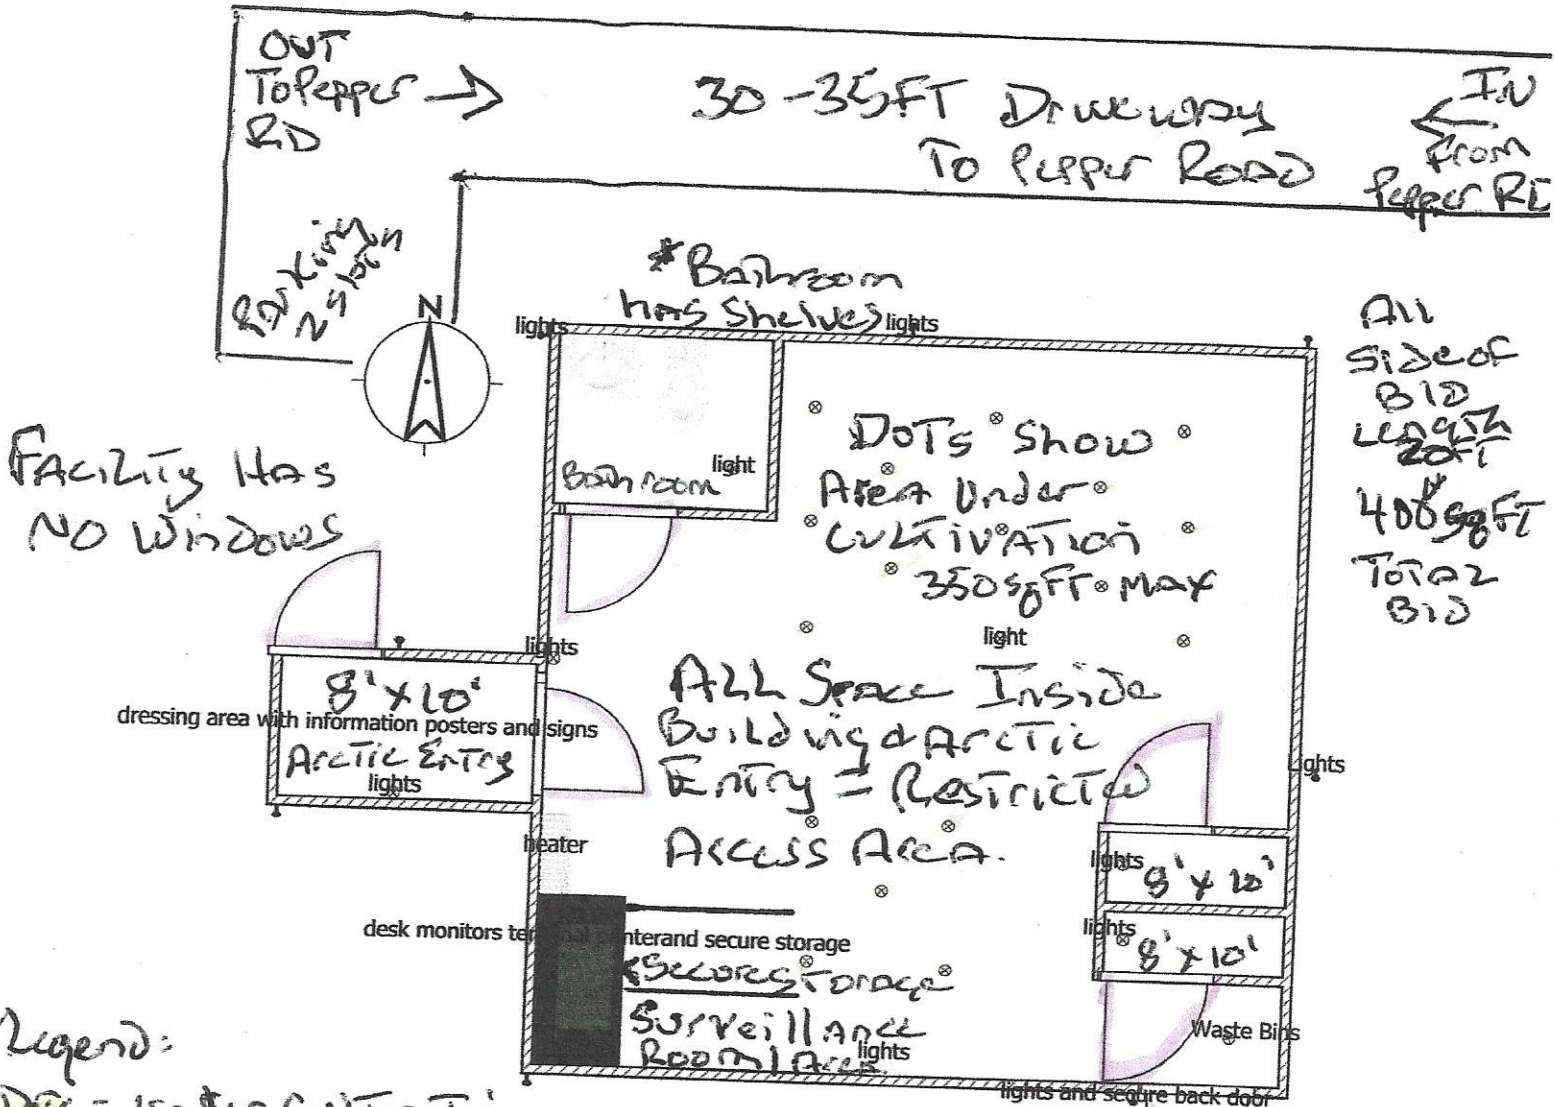 OUT
To Pepper
RD
30-35FT Driveway
To Pepper Road
IN
from
Pepper RD
Parking
N
*Bathroom
has Shelves
lights
lights
All
Side of
BlD
Length
20FT
400 sqFT
Total
BlD
Facility Has
NO Windows
light
Bathroom
DOTS Show
Area Under
Cultivation
350sqFT MAX
light
lights
8'x10'
dressing area with information posters and signs
Arctic Entry
lights
ALL Space Inside
Building & Arctic
Entry = Restricted
Access Area.
Lights
heater
lights
8'x10'
lights
8'x10'
desk monitors terminal printerand secure storage
Secure Storage
Surveillance
Room/Area
lights
Waste Bins
lights and secure back door
Legend: